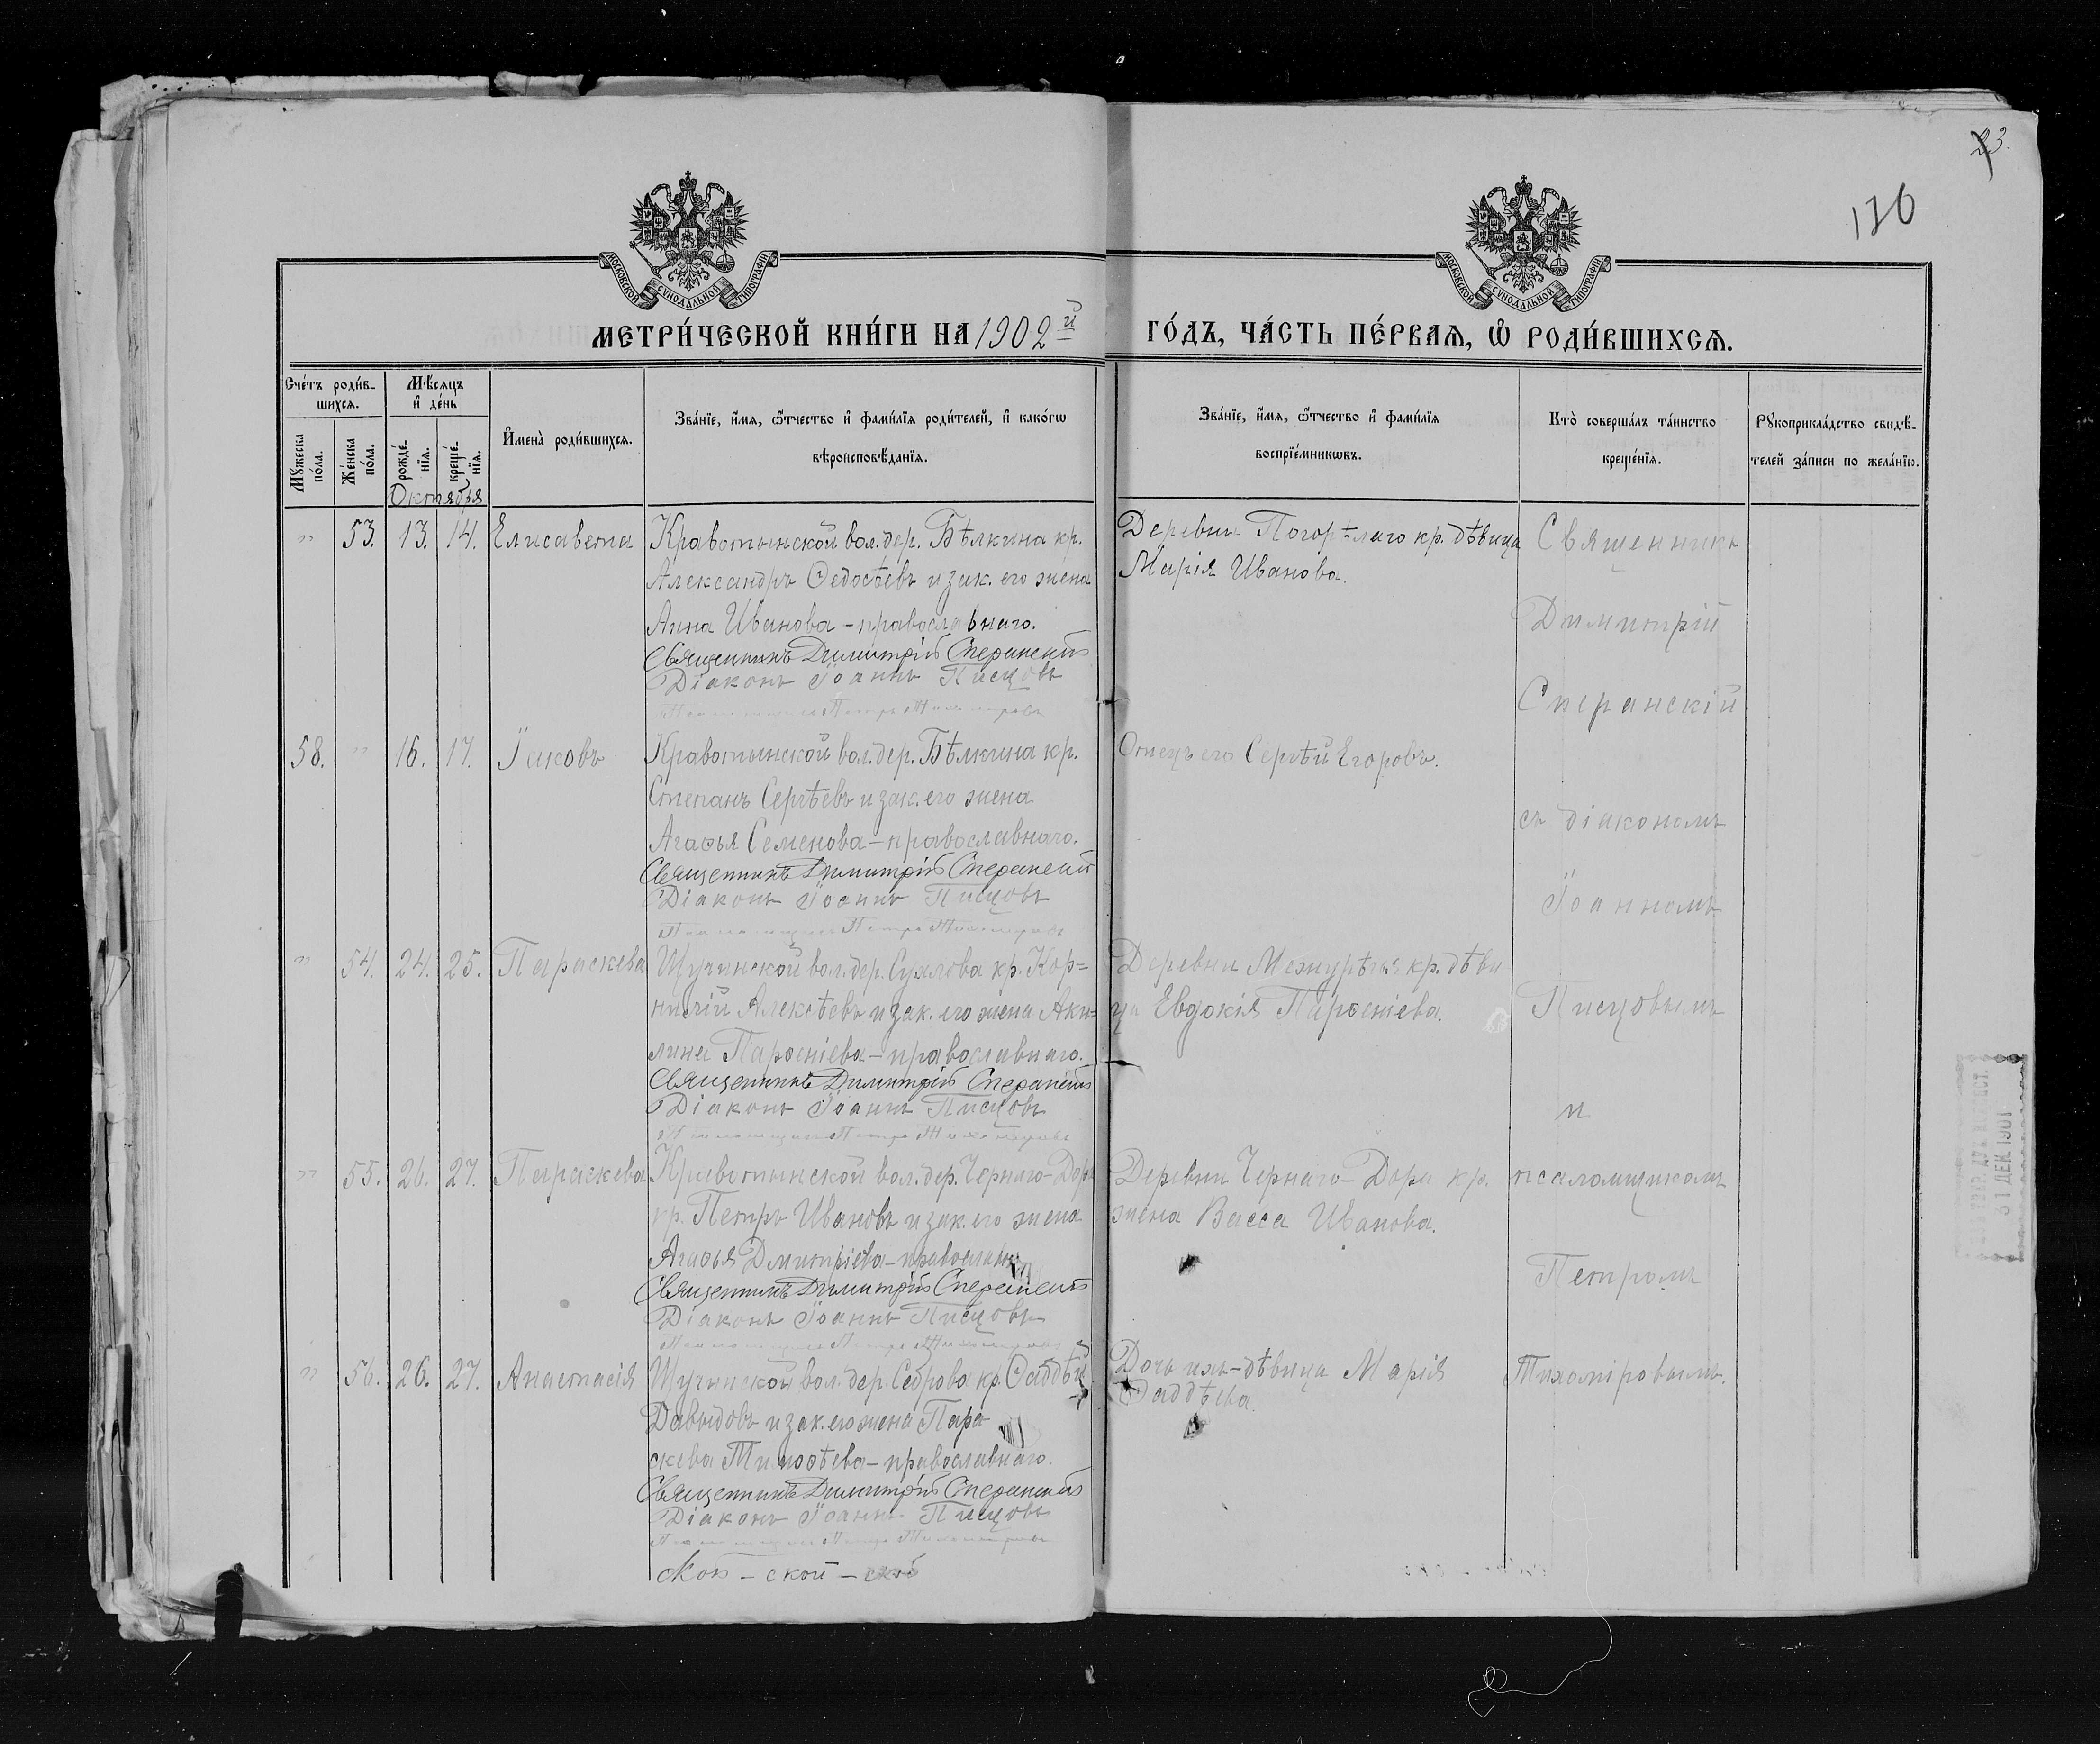 23.
176
МОСКОВСКОЙ СУНОДАЛЬНОЙ ТИПОГРАФІИ
МОСКОВСКОЙ СУНОДАЛЬНОЙ ТИПОГРАФІИ
МЕТРИ́ЧЕСКОЙ КНИ́ГИ НА 1902й
ГО́ДЪ, ЧА́СТЬ ПЕ́РВАЯ, Ѡ РОДИ́ВШИХСѦ.
Сче́тъ роди́в-
шихсѧ.
Мѣ́сѧцъ
и҆ де́нь
Мꙋжеска по́ла.
Же́нска по́ла.
рожде́-
нїѧ.
креще́-
нїѧ.
И҆мена̀ роди́вшихсѧ.
Зва́нїе, и҆́мѧ, ѻ҆́тчество и҆ фами́лїѧ роди́телей, и҆ како́гѡ
вѣроисповѣ́данїѧ.
Зва́нїе, и҆́мѧ, ѻ҆́тчество и҆ фами́лїѧ
воспрїе́мникѡвъ.
Кто̀ соверша́лъ та́инство
креще́нїѧ.
Рꙋкоприкла́дство свидѣ́-
телей за́писи по жела́нїю.
Октября
" 53. 13. 14. Елисавета
Кравотынской вол. дер. Бѣлкина кр.
Александръ Ѳедосѣевъ и зак. его жена
Анна Иванова – православнаго.
Священникъ Димитрій Сперанскій
Діаконъ Іоаннъ Писцовъ
Псаломщикъ Петръ Тихомировъ
Деревни Погорѣлаго кр. дѣвица
Марія Иванова.
58. " 16. 17. Іаковъ
Кравотынской вол. дер. Бѣлкина кр.
Степанъ Сергѣевъ и зак. его жена
Агаѳья Семенова – православнаго.
Священникъ Димитрій Сперанскій
Діаконъ Іоаннъ Писцовъ
Псаломщикъ Петръ Тихомировъ
Отецъ его Сергѣй Егоровъ.
" 54. 24. 25. Параскева
Щучинской вол. дер. Сухлова кр. Кор=
нилій Алексѣевъ и зак. его жена Аки=
лина Парѳеніева – православнаго.
Священникъ Димитрій Сперанскій
Діаконъ Іоаннъ Писцовъ
Псаломщикъ Петръ Тихомировъ
Деревни Межурѣчья кр. дѣви
ца Евдокія Парѳеніева.
" 55. 26. 27. Параскева
Кравотынской вол. дер. Чернаго-Дора
кр. Петръ Ивановъ и зак. его жена
Агаѳья Дмитріева – православн
Священникъ Димитрій Сперанскій
Діаконъ Іоаннъ Писцовъ
Псаломщикъ Петръ Тихомировъ
Деревни Чернаго-Дора кр.
жена Васса Иванова.
" 56. 26. 27. Анастасія
Щучинской вол. дер. Себрова кр. Ѳаддѣй
Давыдовъ и зак. его жена Пара-
скева Тимоѳѣева – православнаго.
Священникъ Димитрій Сперанскій
Діаконъ Іоаннъ Писцовъ
Псаломщикъ Петръ Тихомировъ
Дочь ихъ – дѣвица Марія
Ѳаддѣева.
Священникъ
Димитрій
Сперанскій
съ діакономъ
Іоанномъ
Писцовымъ
и
псаломщикомъ
Петромъ
Тихоміровымъ.
31 ДЕК 1901
ской – ской –